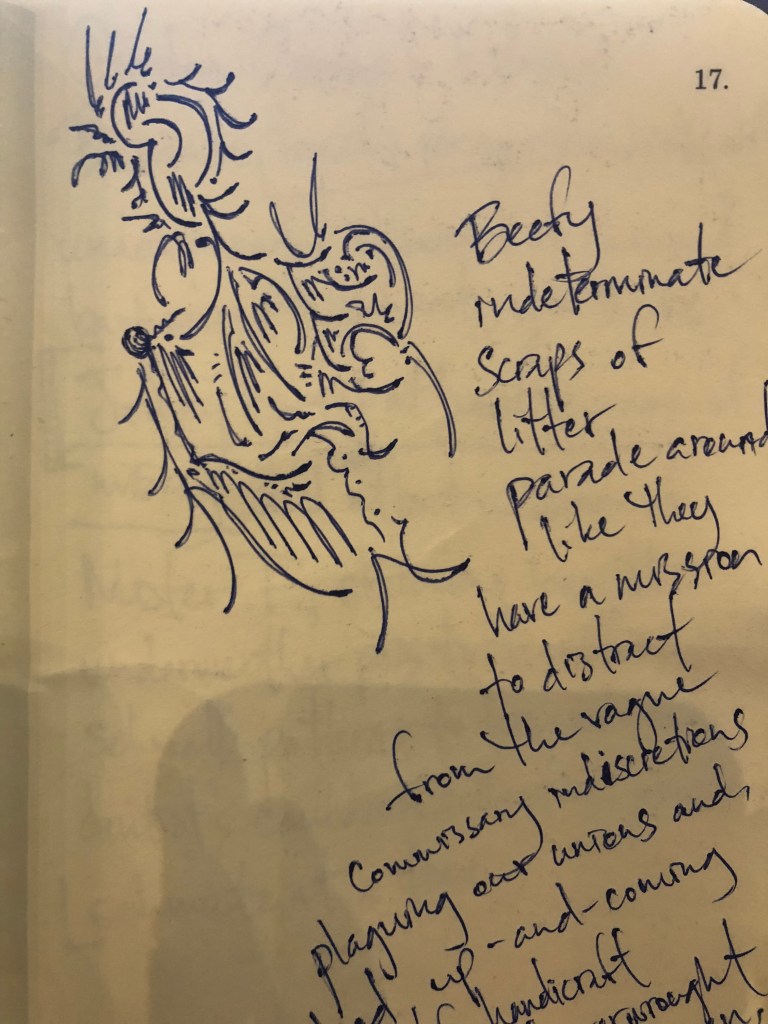 17.
Beefy
indeterminate
scraps of
litter
parade around
like they
have a mission
to distract
from the vague
commissary indiscretions
plaguing our unions and,
up-and-coming
handicraft